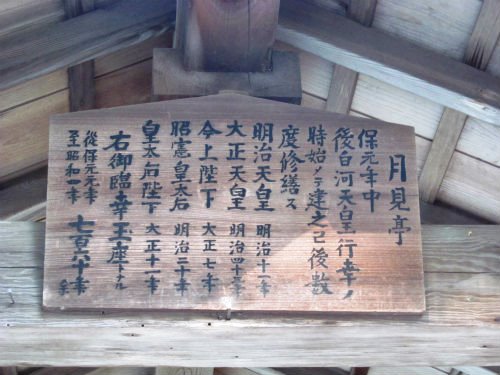 月見亭
保元年中
後白河天皇行幸ノ
時始メテ建之已後数
度修繕ス
明治天皇 明治十一年
大正天皇 明治四十三年
今上陛下 大正七年
昭憲皇太后 明治二十年
皇太后陛下 大正十一年
右御臨幸玉座トナル
従保元元年
至昭和一年 七百八十年